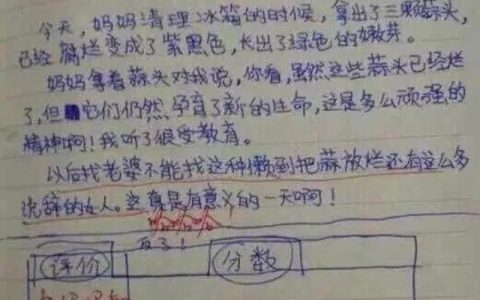 今天,妈妈清理冰箱的时候,拿出了三颗蒜头,
已经腐烂变成了紫黑色,长出了绿色的嫩芽。
妈妈拿着蒜头对我说,你看,虽然这些蒜头已经烂
了,但它们仍然孕育了新的生命,这是多么顽强的
精神啊!我听了很受教育。
以后找老婆不能找这种懒到把蒜放烂还有这么多
说辞的女人。这真是有意义的一天啊!
评价
分数